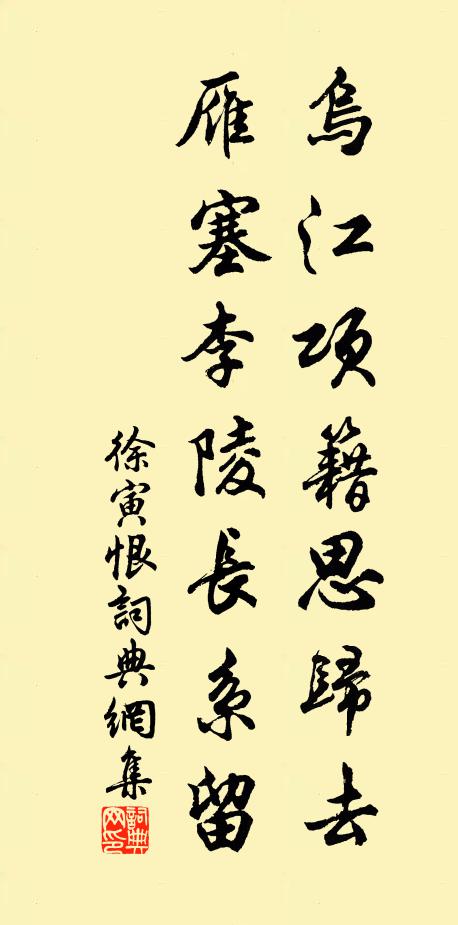 烏江項籍思歸去
雁塞李陵長系留
徐寅恨詞典網集
詞典網印